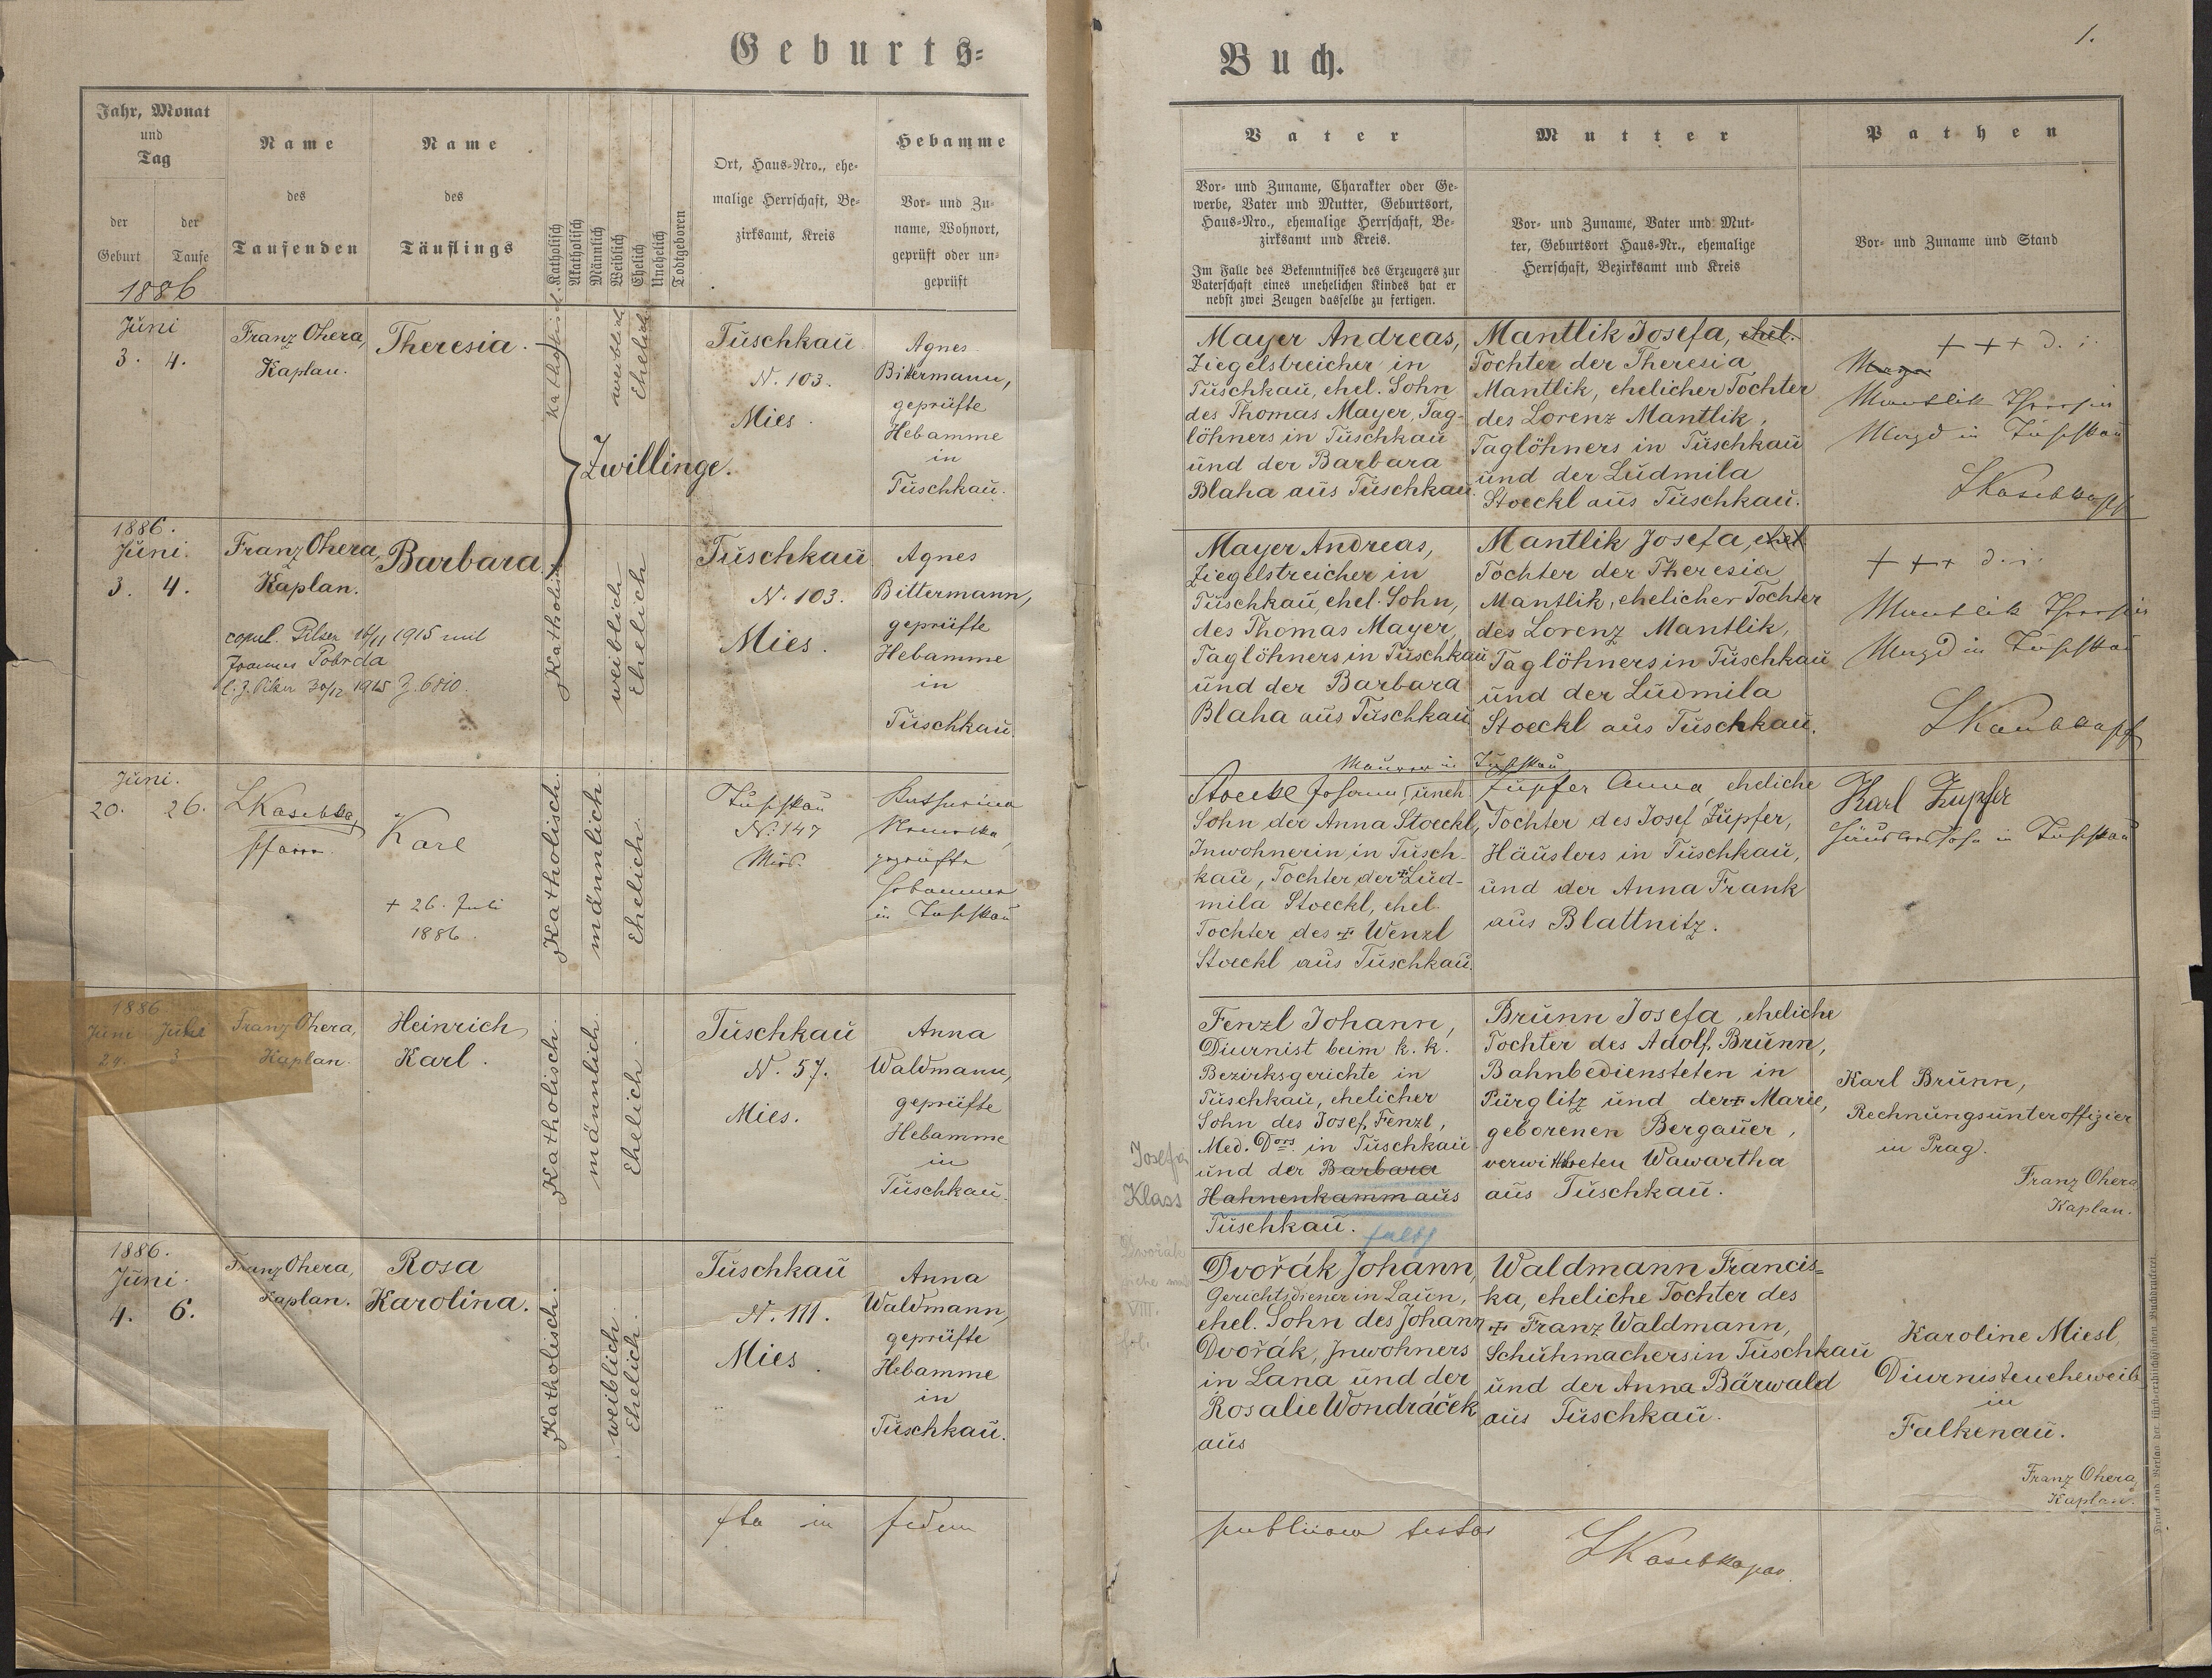 Geburts-
Buch.
1.
Jahr, Monat
und
Tag
der
Geburt
der
Taufe
1886
Name
des
Taufenden
Name
des
Täuflings
Katholisch
Akatholisch
Männlich
Weiblich
Ehelich
Unehelich
Todtgeboren
Ort, Haus-Nro., ehe-
malige Herrschaft, Be-
zirksamt, Kreis
Hebamme
Vor- und Zu-
name, Wohnort,
geprüft oder un-
geprüft
Vater
Vor- und Zuname, Charakter oder Ge-
werbe, Vater und Mutter, Geburtsort,
Haus-Nro., ehemalige Herrschaft, Be-
zirksamt und Kreis.
Im Falle des Bekenntnisses des Erzeugers zur
Vaterschaft eines unehelichen Kindes hat er
nebst zwei Zeugen dasselbe zu fertigen.
Mutter
Vor- und Zuname, Vater und Mut-
ter, Geburtsort Haus-Nr., ehemalige
Herrschaft, Bezirksamt und Kreis
Pathen
Vor- und Zuname und Stand
Juni
3. 4.
Franz Ohera,
Kaplan.
Theresia.
Katholisch.
weiblich
Ehelich
Zwillinge.
Tuschkau
N. 103.
Mies.
Agnes
Bittermann,
geprüfte
Hebamme
in
Tuschkau.
Mayer Andreas,
Ziegelstreicher in
Tuschkau, ehel. Sohn
des Thomas Mayer, Tag-
löhners in Tuschkau
und der Barbara
Blaha aus Tuschkau.
Mantlik Josefa, ehel.
Tochter der Theresia
Mantlik, ehelicher Tochter
des Lorenz Mantlik,
Taglöhners in Tuschkau
und der Ludmila
Stoeckl aus Tuschkau.
+++ d. i.
Mantlik Theresia
Magd in Tuschkau
1886.
Juni.
3. 4.
Franz Ohera,
Kaplan.
copul. Pilsen 16/11 1915 mit
Joannes Pobrda
l. Z. Pilsen 30/12 1915 Z. 6810.
Barbara
Katholisch
weiblich
Ehelich
Tuschkau
N. 103.
Mies.
Agnes
Bittermann,
geprüfte
Hebamme
in
Tuschkau.
Mayer Andreas,
Ziegelstreicher in
Tuschkau, ehel. Sohn,
des Thomas Mayer,
Taglöhners in Tuschkau
und der Barbara
Blaha aus Tuschkau
Mantlik Josefa, ehel
Tochter der Theresia
Mantlik, ehelicher Tochter
des Lorenz Mantlik,
Taglöhners in Tuschkau
und der Ludmila
Stoeckl aus Tuschkau.
+++ d. i.
Mantlik Theresia
Magd in Tuschkau
Juni.
20. 26.
Pfarrer
Karl
+ 26. Juli
1886.
Katholisch.
männlich.
Ehelich.
Tuschkau
N. 147
Mies.
Katharina
geprüfte
Hebamme
in Tuschkau
Maurer in Tuschkau
Stoeckl Johann, uneh
Sohn der Anna Stoeckl,
Inwohnerin in Tusch-
kau, Tochter der + Lud-
mila Stoeckl, ehel.
Tochter des + Wenzl
Stoeckl aus Tuschkau.
Zupfer Anna, eheliche
Tochter des Josef Zupfer,
Häuslers in Tuschkau,
und der Anna Frank
aus Blattnitz.
Karl Zupfer
Häuslerssohn in Tuschkau
1886
Juni Juli
29. 3
Franz Ohera,
Kaplan.
Heinrich
Karl.
Katholisch.
männlich.
Ehelich.
Tuschkau
N. 57.
Mies.
Anna
Waldmann,
geprüfte
Hebamme
in
Tuschkau.
Josefa
Klass
Fenzl Johann,
Diurnist beim k. k.
Bezirksgerichte in
Tuschkau, ehelicher
Sohn des Josef Fenzl,
Med. Dors. in Tuschkau
und der Barbara
Hahnenkamm aus
Tuschkau. falsch
Brunn Josefa, eheliche
Tochter des Adolf Brunn,
Bahnbediensteten in
Pürglitz und der + Marie,
geborenen Bergauer,
verwittweten Wawartha
aus Tuschkau.
Karl Brunn,
Rechnungsunteroffizier
in Prag.
Franz Ohera
Kaplan.
1886.
Juni.
4. 6.
Franz Ohera,
Kaplan.
Rosa
Karolina.
Katholisch.
weiblich.
Ehelich.
Tuschkau
N. 111.
Mies.
Anna
Waldmann,
geprüfte
Hebamme
in
Tuschkau.
Dvořák
siehe
VIII.
fol.
Dvořák Johann,
Gerichtsdiener in Laun,
ehel. Sohn des Johann
Dvořák, Inwohners
in Lana und der
Rosalie Wondráček
aus
Waldmann Francis-
ka, eheliche Tochter des
+ Franz Waldmann,
Schuhmachers in Tuschkau
und der Anna Bärwald
aus Tuschkau.
Karoline Miesl,
Diurnisteneheweib
in
Falkenau.
Franz Ohera,
Kaplan.
Ita in fidem
publicam testor